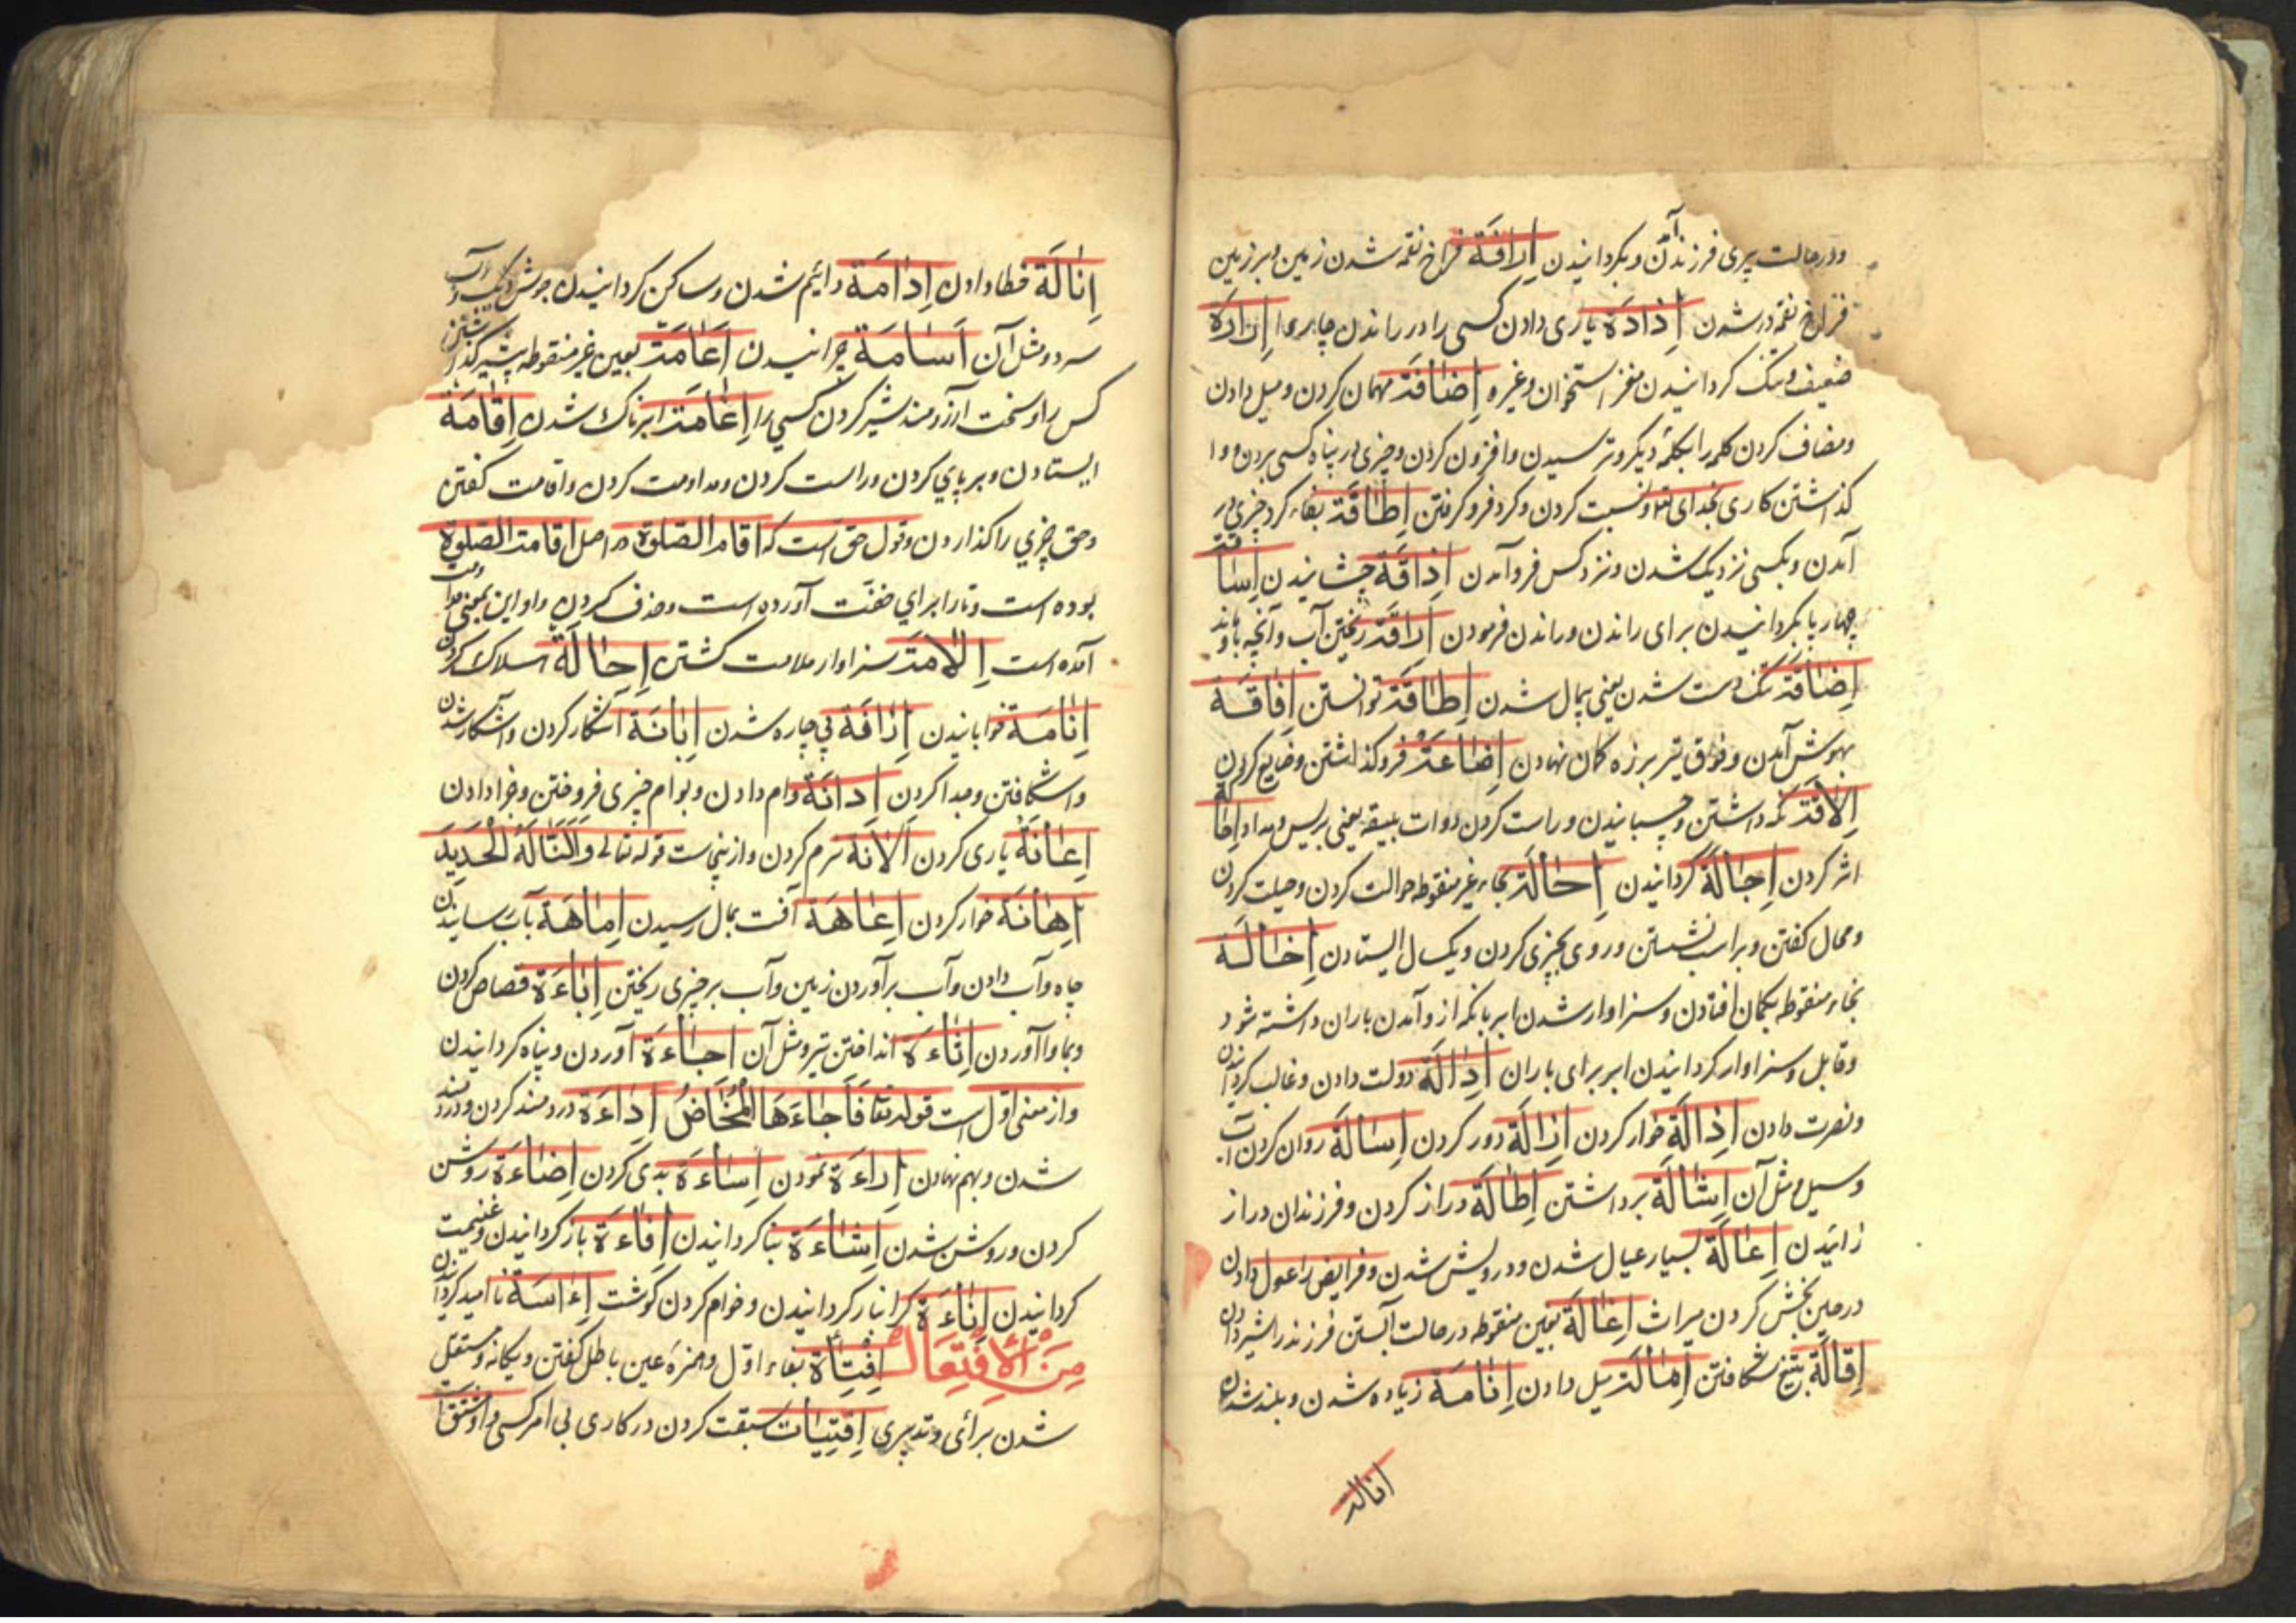 ودر حالت پیری فرزند آن وبکردانیدن اِرافَة فراخ نقمه شدن زمین وبر زمین
فراخ نقمه در شدن اِذادَة یاری دادن کسی را در راندن چارپا اِرارَة
ضعیف وتنک کردانیدن مغز استخوان وغیره اِضافَة مهمان کردن ومیل دادن
ومضاف کردن کلمه را بکلمهٔ دیکر وترسیدن وافزون کردن وچیزی در پناه کسی بردن ووا
کذاشتن کاری بخدای تعا ونسبت کردن وکرد فرو کرفتن اِطافَة بفاء کرد چیزی بر
آمدن وبکسی نزدیک شدن ونزد کس فرو آمدن اِذاقَة چشانیدن اِساقة
چهارپا بکردانیدن برای راندن وراندن فرمودن اِراقَة ریختن آب وآنچه باو ماند
اِضاقَة تنک دست شدن یعنی بمال شدن اِطاقَة توانستن اِفاقَة
بهوش آمدن وفوق تیر بر زه کمان نهادن اِضاعَة فرو کذاشتن وضایع کردن
اِلاقَة نکه داشتن وچسبانیدن وراست کردن دوات بلیقه یعنی بریس ومداد اِحاکة
اثر کردن اِجالَة کردانیدن اِحالَة بحاء غیر منقوطه حوالت کردن وحیلت کردن
ومحال کفتن وبر اسب نشستن وروی بچیزی کردن ویکسال ایستادن اِخالَة
بخاء منقوطه بکمان افتادن وسزاوار شدن ابر بانکه ازو آمدن باران داشته شود
وقابل وسزاوار کردانیدن ابر برای باران اِدالَة دولت دادن وغالب کردانیدن
ونصرت دادن اِذالَة خوار کردن اِزالَة دور کردن اِسالَة روان کردن آب
وسیل ومثل آن اِشالَة برداشتن اِطالَة دراز کردن وفرزندان دراز
زائیدن اِعالَة بسیار عیال شدن ودرویش شدن وفرایض را عول دادن
در حین بخش کردن میراث اِغالَة بغین منقوطه در حالت آبستن فرزند را شیر دادن
اِقالَة بتیغ شکافتن اِمالَة میل دادن اِنامَة زیاده شدن وبلند شدن
انالة
اِنالَة عطا دادن اِدامَة دایم شدن وساکن کردانیدن جوش دیک وآب
سرد ومثل آن اَسامَة چرانیدن اِعامَة بعین غیر منقوطه بشیر کذاشتن
کس را وسخت آرزومند شیر کردن کسی را اِغامَة ابرناک شدن اِقامَة
ایستادن وبر پای کردن وراست کردن ومداومت کردن واقامت کفتن
وحق چیزی را کذاردن وقول حق است که اقام الصلوة در اصل اقامة الصلوة
بوده است وتا را برای خفّت آورده است وحذف کردن واو این بمعنی مداومت
آمده است اِلامَة سزاوار ملامت کشتن اِحالَة هلاک کردن
اِنامَة خوابانیدن اِزافَة بی چاره شدن اِبانَة آشکار کردن وآشکار شدن
واشکافتن وجدا کردن اِدانَة وام دادن وبوام چیزی فروختن وجزا دادن
اِعانَة یاری کردن اَلانَة نرم کردن وازینجاست قوله تعالی وَاَلَنَّا لَهُ الْحَدِیدَ
اِهانَة خوار کردن اِعاهَة آفت بمال رسیدن اِماهَة بآب رسانیدن
چاه وآب دادن وآب برآوردن زمین وآب بر چیزی ریختن اِباءَة قصاص کردن
وبماوا آوردن اِثاءَة انداختن تیر ومثل آن اِجاءَة آوردن وپناه کردانیدن
واز معنی اوّل است قوله تعا فَاَجاءَهَا الْمَخَاضُ اِداءَة دردمند کردن ودردمند
شدن وبهم نهادن اِراءَة نمودن اِساءَة بدی کردن اِضاءَة روشن
کردن وروشن شدن اِشاءَة بنا کردانیدن اِفاءَة باز کردانیدن وغنیمت
کردانیدن اِناءَة کرانبار کردانیدن وخام کردن کوشت اِءاسَة نا امید کردانیدن
مِنَ الْاِفْتِعَال اِفْتِأة بفاء اوّل وهمزه عین باطل کفتن ویکانه ومستقل
شدن برأی وتدبیری اِفْتِیات سبقت کردن در کاری بی امر کسی